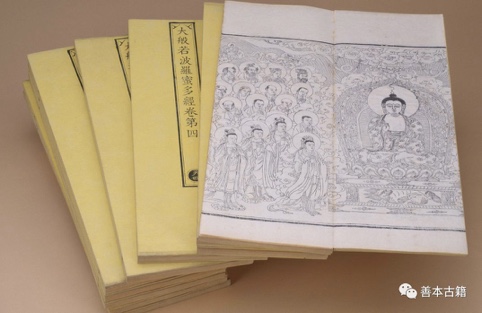 大般若波羅蜜多經卷第四
善本古籍